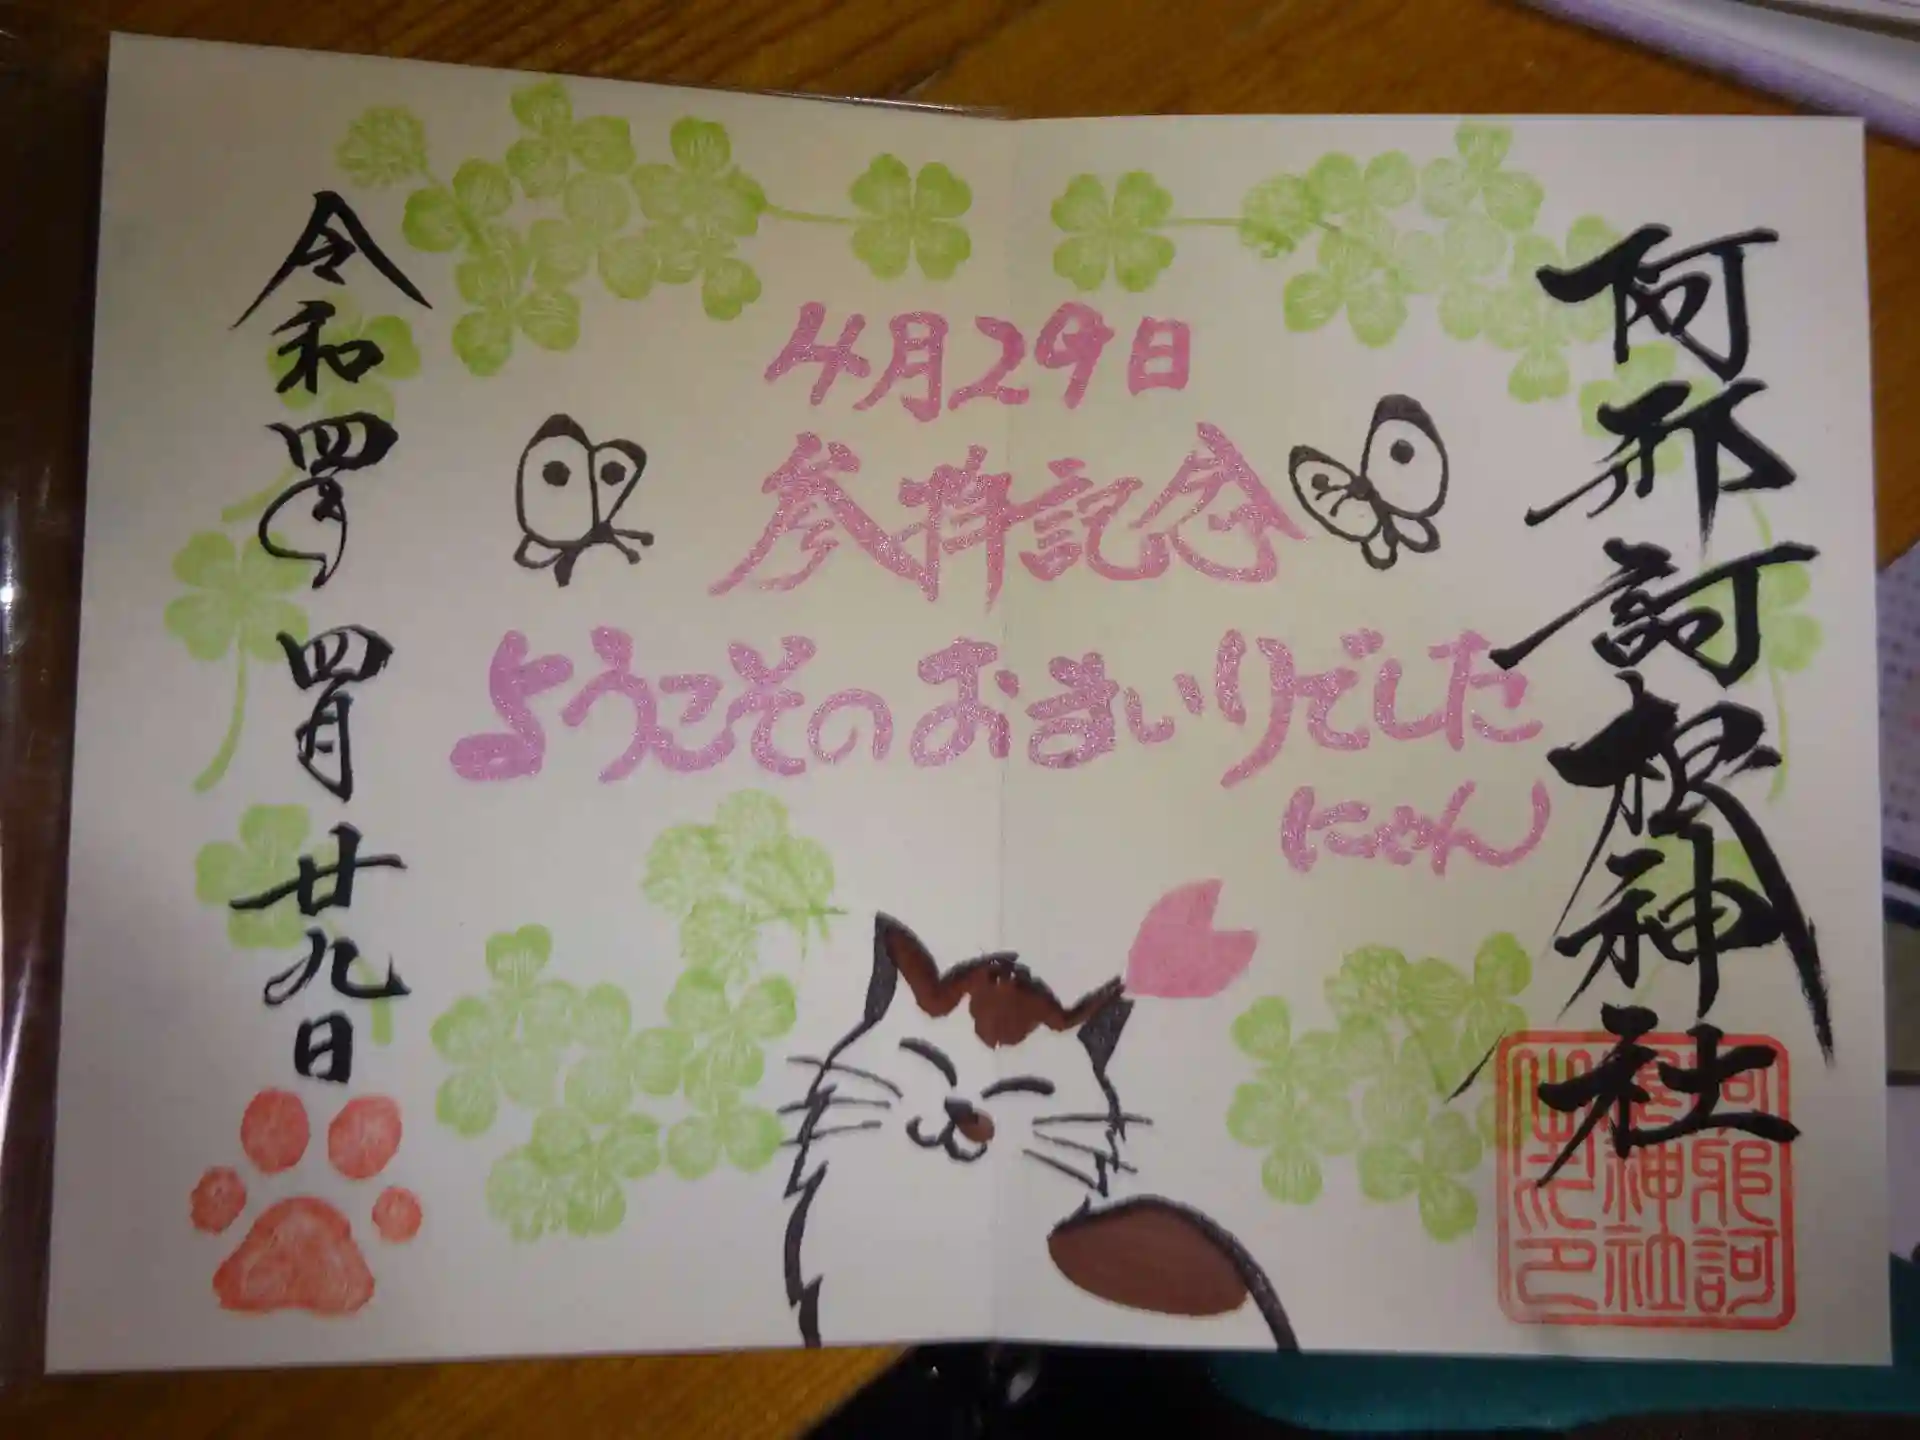 阿邪訶根神社
4月29日
参拝記念
ようこそのおまいりでした
にゃん
令和四年 四月 廿九日
阿邪訶
根神社
之印